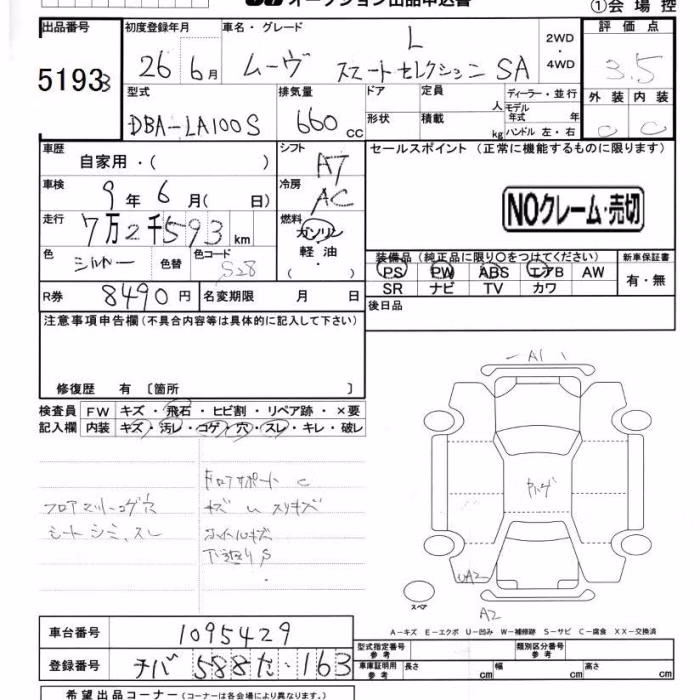 オークション出品申込書
①会場控
出品番号
51933
初度登録年月
26年 6月
車名・グレード
ムーヴ L スマートセレクション SA
2WD
・
4WD
評価点
3.5
外装 内装
C C
型式
DBA-LA100S
排気量
660 cc
ドア
形状
定員 人
積載 kg
ディーラー・並行
モデル
年式 年
ハンドル 左・右
車歴
自家用・( )
シフト
AT
セールスポイント (正常に機能するものに限ります)
車検
9年 6月( 日)
冷房
AC
NOクレーム・売切
走行
7万2千593 km
燃料
ガソリン
軽油
( ・ )
色
シルバー
色替
色コード
S28
装備品 (純正品に限り○をつけてください)
PS PW ABS エアB AW
SR ナビ TV カワ
新車保証書
有・無
R券
8490円
名変期限 月 日
後日品
注意事項申告欄 (不具合内容等は具体的に記入して下さい)
修復歴 有 〔箇所 〕
検査員
記入欄
FW キズ・飛石・ヒビ割・リペア跡・×要
内装 キズ・汚レ・コゲ・穴・スレ・キレ・破レ
フロアマット コゲ穴
シート シミ、スレ
C
キズ
スリキズ
ホイルキズ
下廻りS
A1
UA2
A2
スペア
A－キズ E－エクボ U－凹み W－補修跡 S－サビ C－腐食 XX－交換済
車台番号
1095429
登録番号
チバ 588 た・163
型式指定番号
参考
類別区分番号
参考
車庫証明用
参考
長さ cm
幅 cm
高さ cm
希望出品コーナー (コーナーは各会場により異なります。)